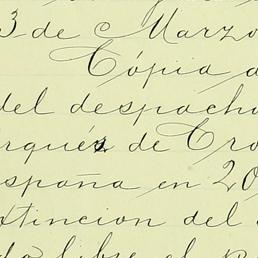 3 de Marzo
Cópia d
del despacho
rqués de Cro
spaña en 20
xtincion del